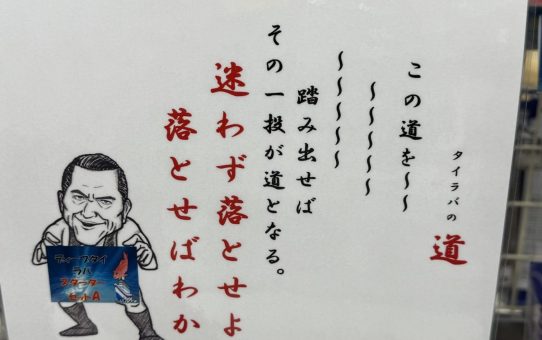 タイラバの道
この道を～～
～～～～～
～～～～～
踏み出せば
その一投が道となる。
迷わず落とせよ
落とせばわか
ディープタイ
ラバ
スターター
セットA